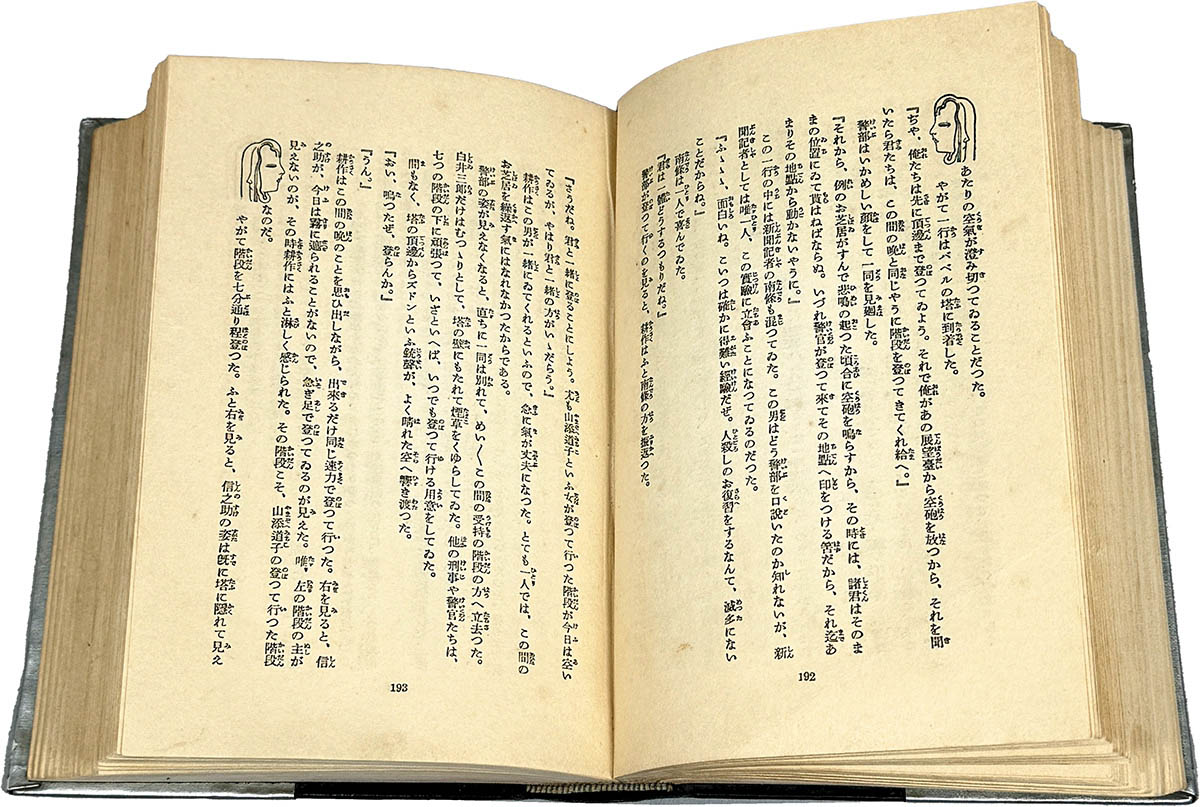 あたりの空氣が澄み切つてゐることだつた。
やがて一行はバベルの塔に到着した。
『ぢや、俺たちは先に頂邊まで登つてゐよう。それで俺があの展望臺から空砲を放つから、それを聞
いたら君たちは、この間の晩と同じやうに階段を登つてきてくれ給へ。』
警部はいかめしい顔をして一同を見廻した。
『それから、例のお芝居がすんで悲鳴の起つた頃合に空砲を鳴らすから、その時には、諸君はそのま
まの位置にゐて貰はねばならぬ。いづれ警官が登つて來てその地點へ印をつける筈だから、それ迄あ
まりその地點から動かないやうに。』
この一行の中には新聞記者の南條も混つてゐた。この男はどう警部を口説いたのか知れないが、新
聞記者としては唯一人、この實驗に立會ふことになつてゐるのだつた。
『ふゝゝゝ、面白いね。こいつは確かに得難い經驗だぜ。人殺しのお復習をするなんて、滅多にない
ことだからね。』
南條は一人で喜んでゐた。
『君は一體どうするつもりだね。』
警部が登つて行くのを見ると、耕作はふと南條の方を振返つた。
192
『さうだね。君と一緒に登ることにしよう。尤も山添道子といふ女が登つて行つた階段が今日は空い
てゐるが、やはり君と一緒の方がいゝだらう。』
耕作はこの男が一緒にゐてくれるといふので、急に氣が丈夫になつた。とても一人では、この間の
お芝居を繰返す氣にはなれなかつたからである。
警部の姿が見えなくなると、直ちに一同は別れて、めい〳〵この間の受持の階段の方へ立去つた。
白井三郎だけはむつゝりとして、塔の壁にもたれて煙草をくゆらしてゐた。他の刑事や警官たちは、
七つの階段の下に頑張つて、いざといへば、いつでも登つて行ける用意をしてゐた。
間もなく、塔の頂邊からズドンといふ銃聲が、よく晴れた空へ響き渡つた。
『おい、鳴つたぜ、登らんか。』
『うん。』
耕作はこの間の晩のことを思ひ出しながら、出來るだけ同じ速力で登つて行つた。右を見ると、信
之助が、今日は霧に遮られることがないので、急ぎ足で登つてゐるのが見えた。唯、左の階段の主が
見えないのが、その時耕作にはふと淋しく感じられた。その階段こそ、山添道子の登つて行つた階段
なのだ。
やがて階段を七分通り程登つた。ふと右を見ると、信之助の姿は既に塔に隱れて見え
193